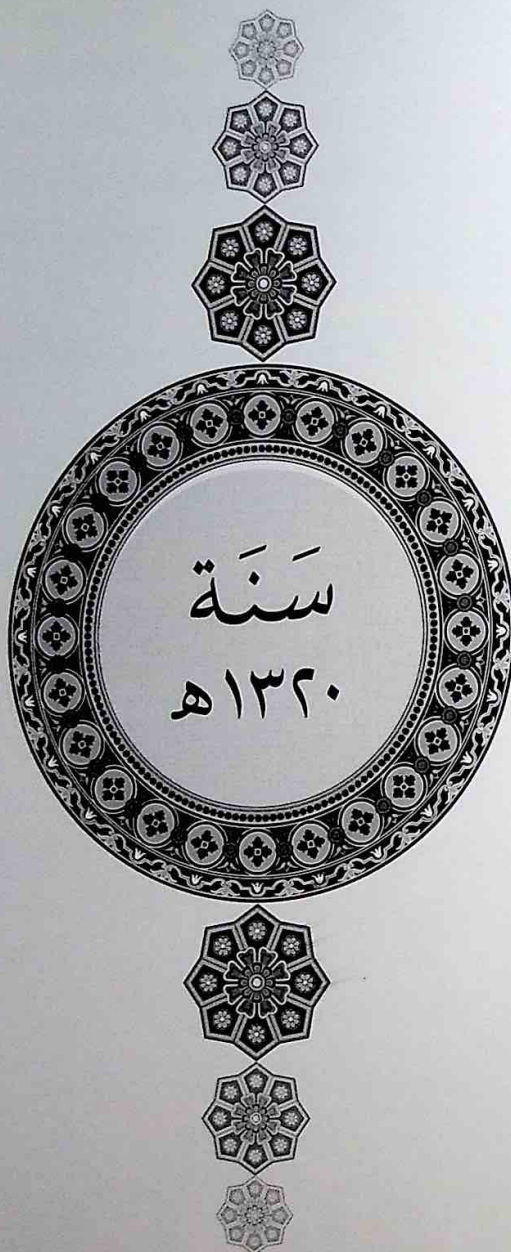 سَنَة
١٣٢٠ه